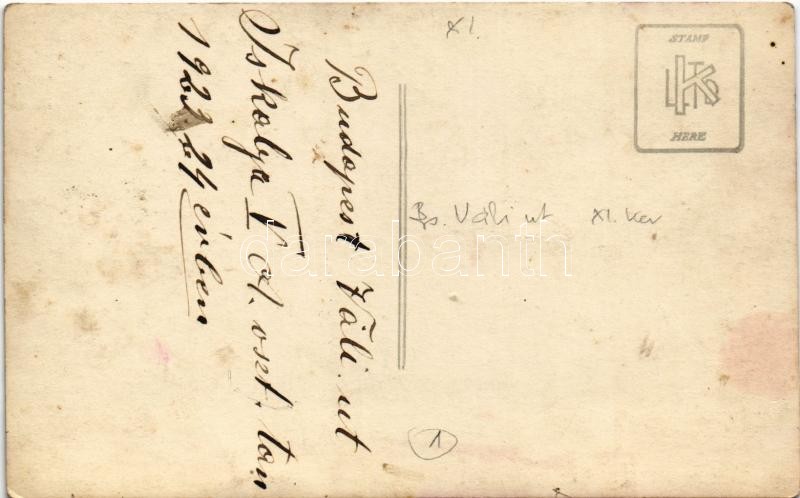 XI.
STAMP
HERE
Budapest Váli ut
Iskolja V ol. oszt. tan
1923-24 évben
Bp. Váli ut XI. ker
1
darabanth